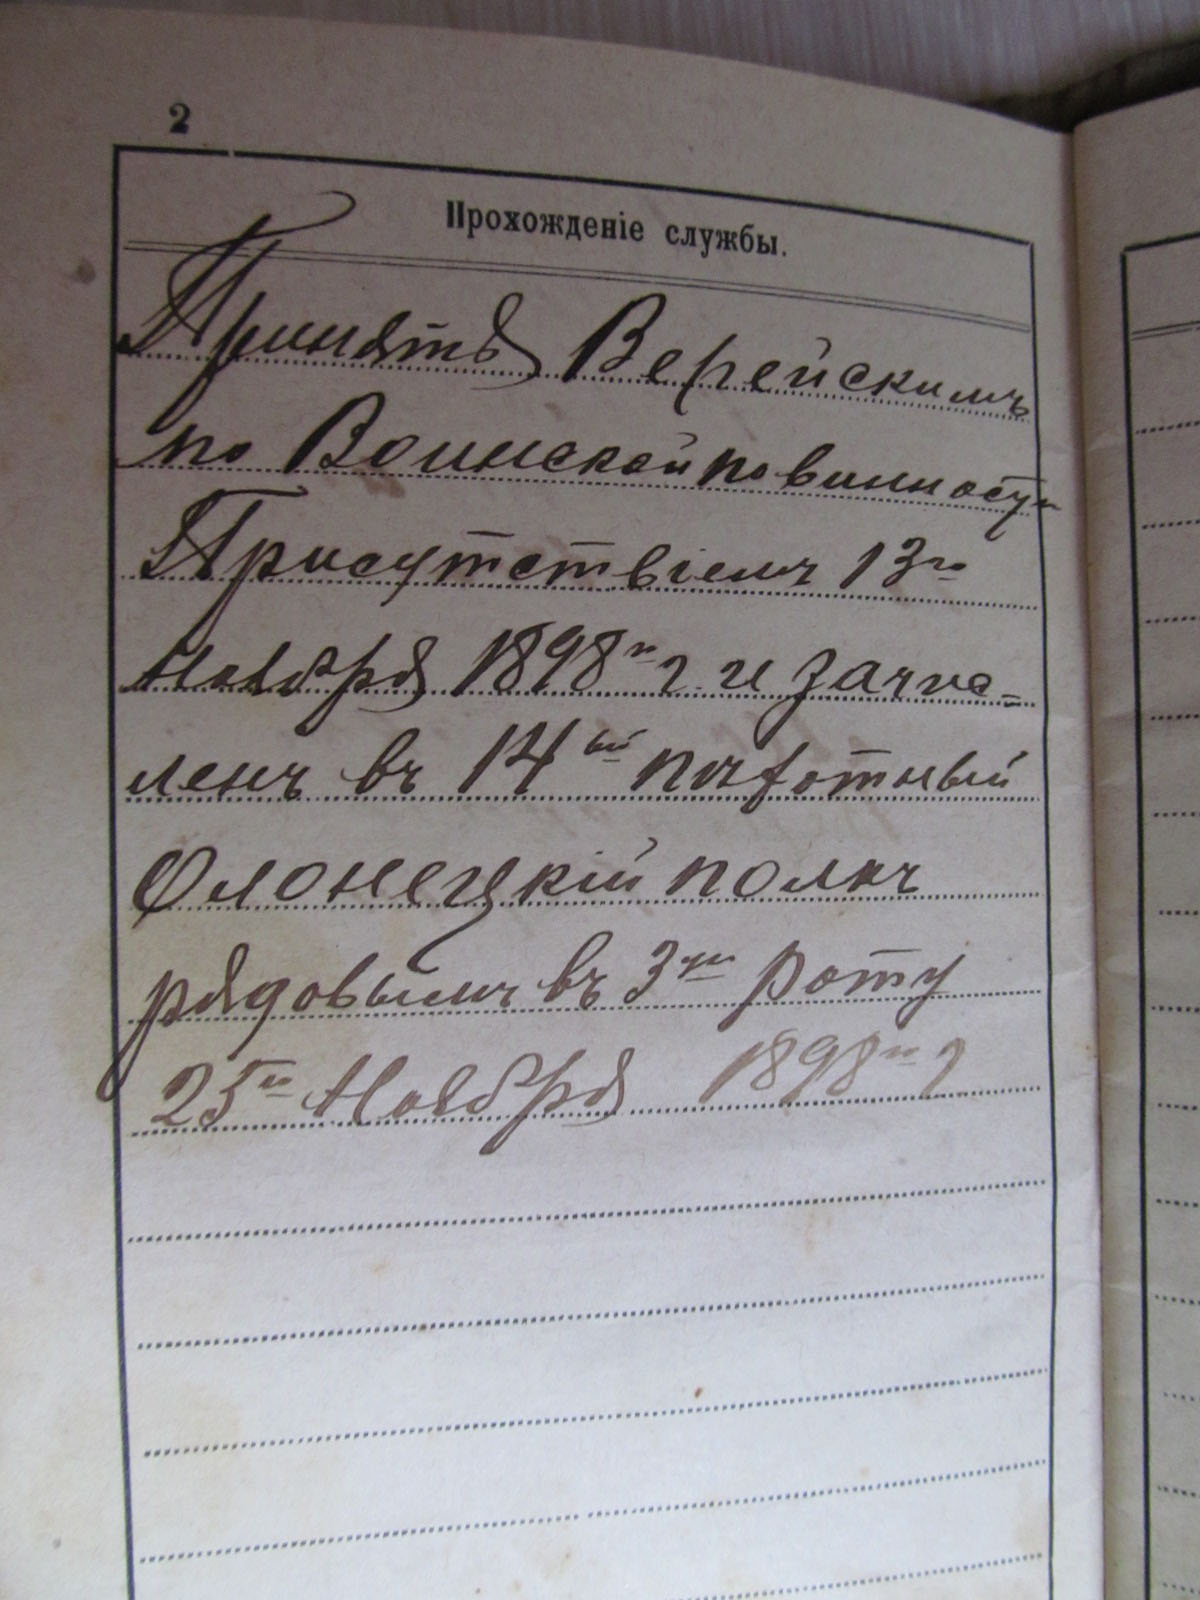 2
Прохожденіе службы.
Принятъ Верейскимъ
по Воинской повинности
Присутствіемъ 13го
Ноября 1898го г. и зачис-
ленъ въ 14ый пѣхотный
Олонецкій полкъ
рядовымъ въ 3ую роту
25го Ноября 1898го г